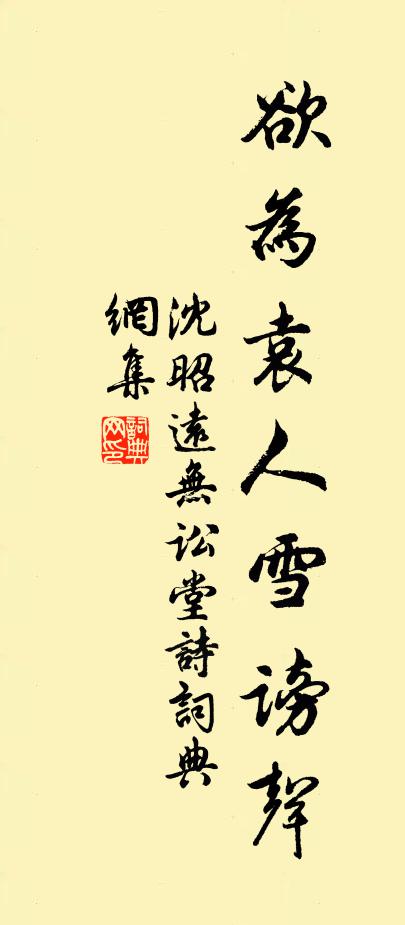 欲為袁人雪謗聲
沈昭遠無訟堂詩詞典
網集
詞典
网印